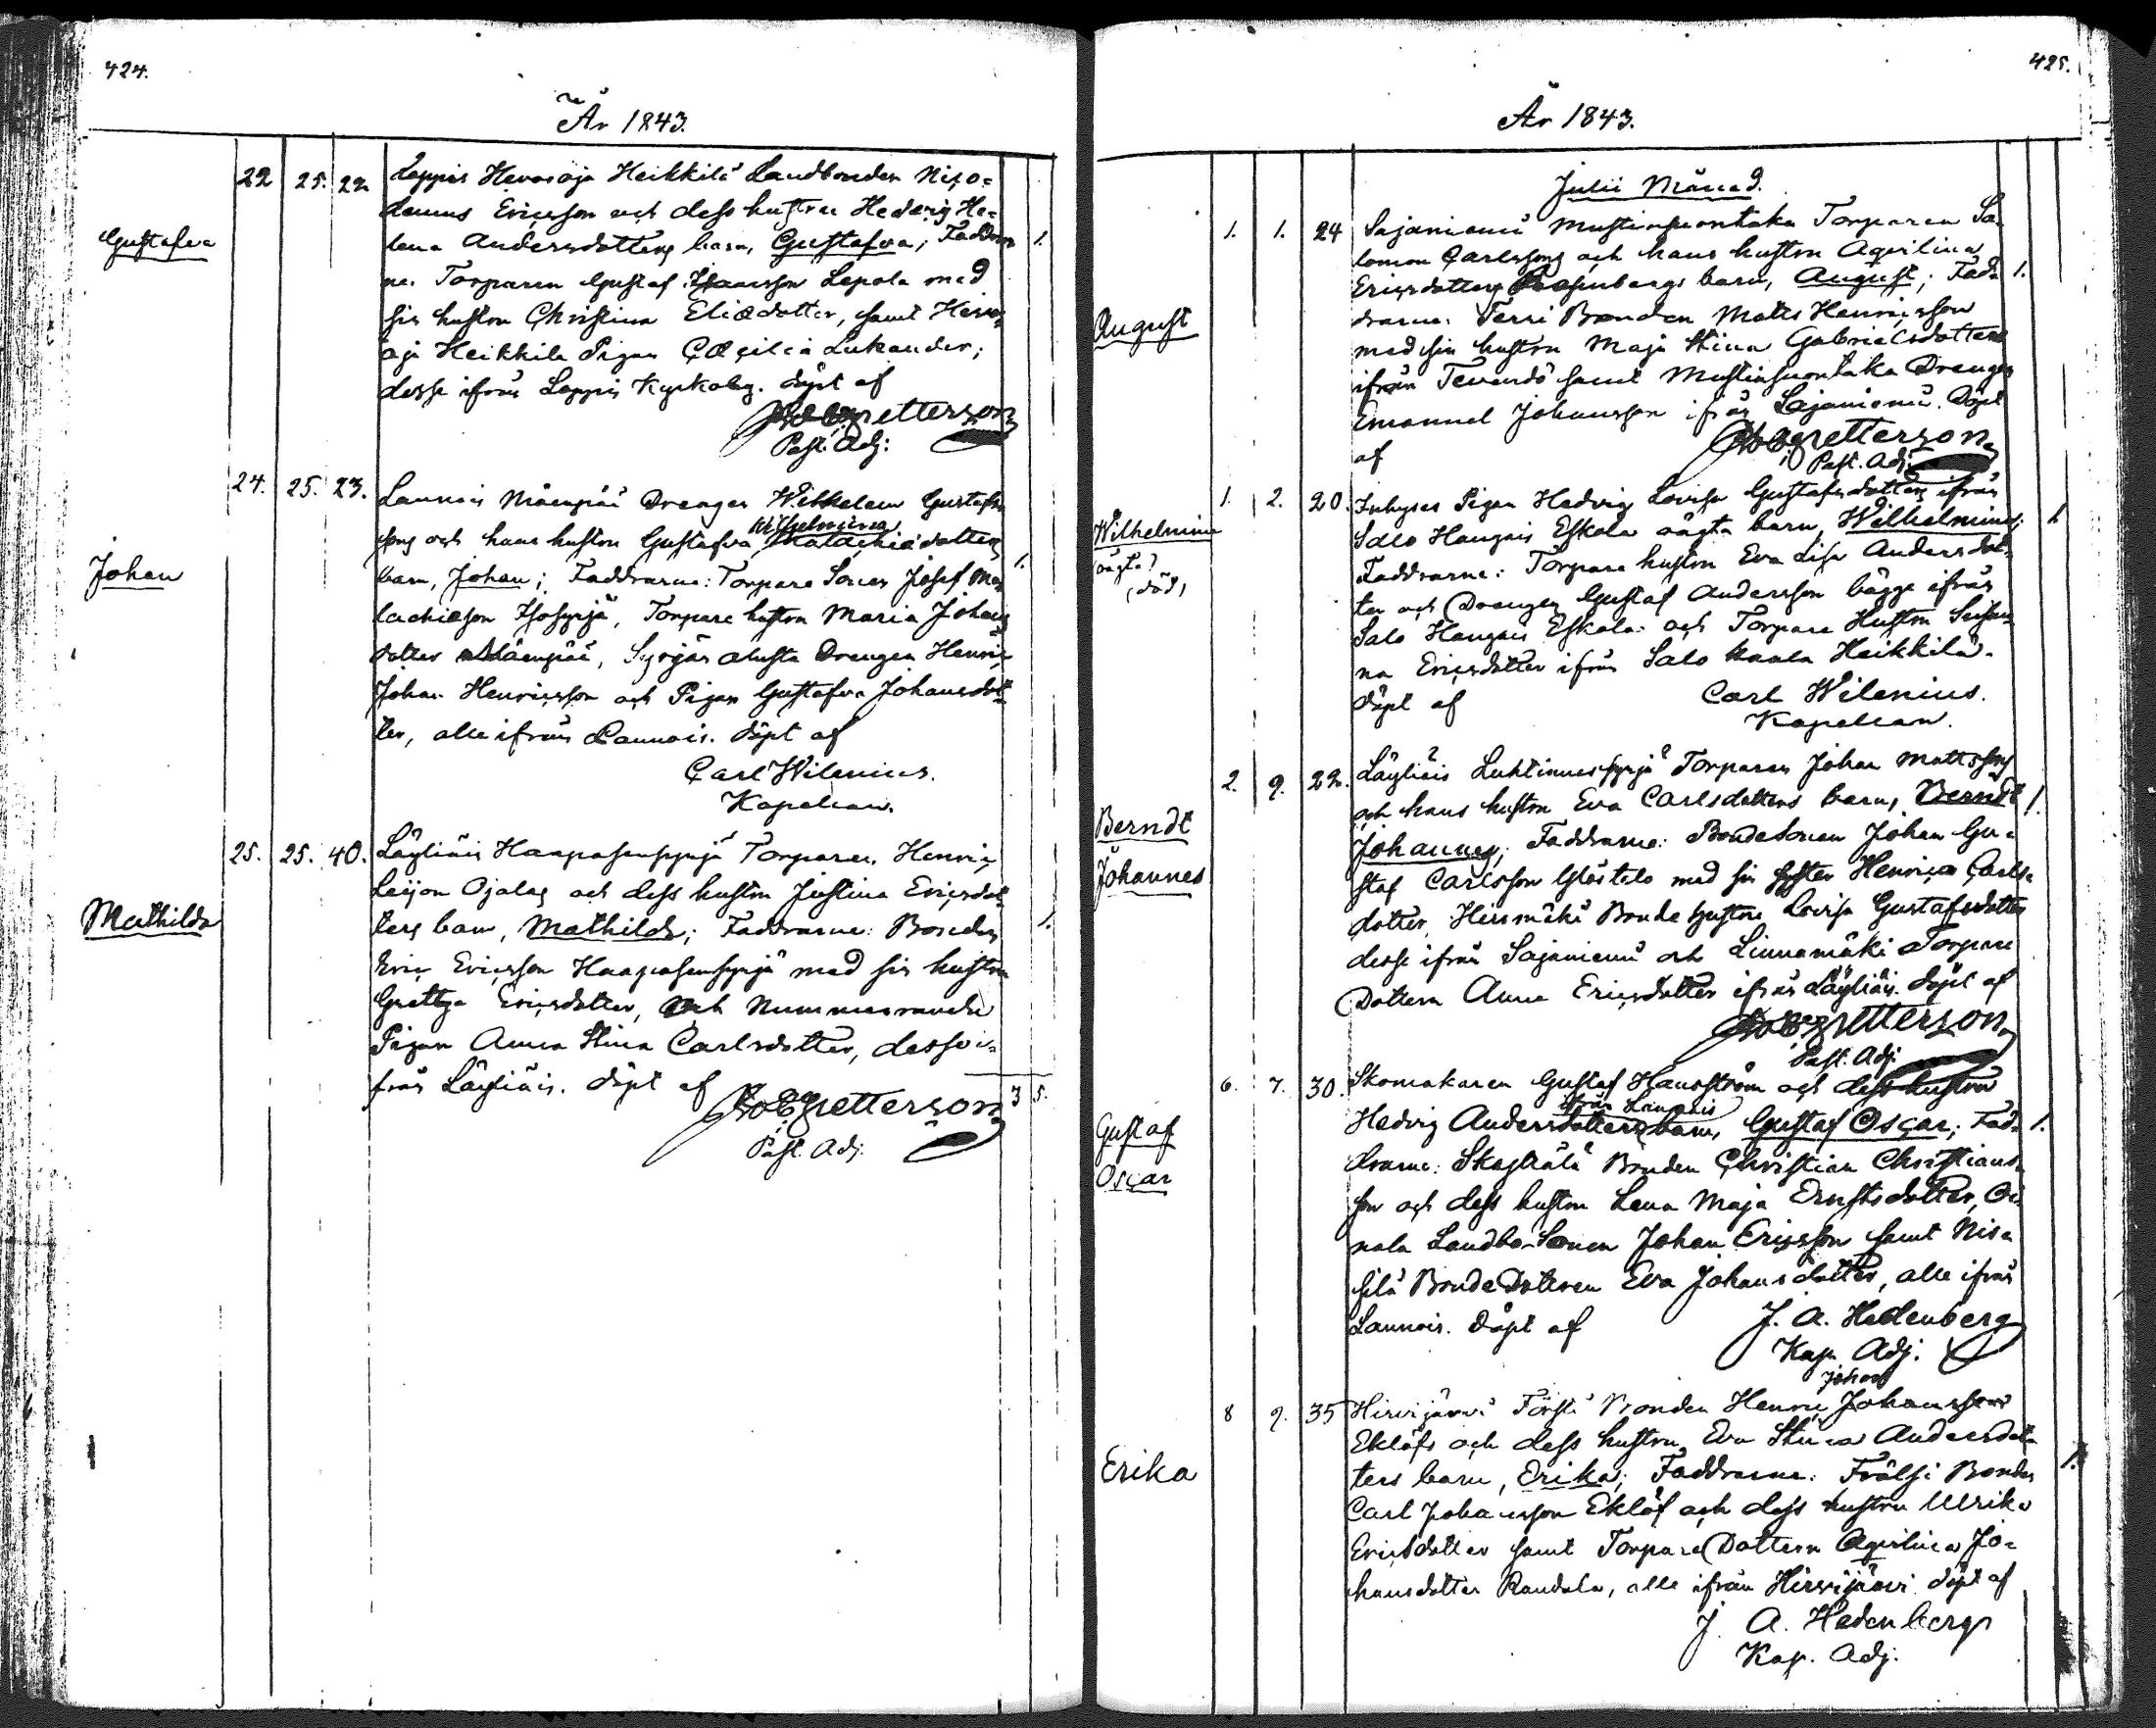 424.
År 1843.
Gustafva
22 25. 22 Loppis Hevosoja Heikkilä Landbonden Nico-
demus Ericsson och dess hustru Hedvig He-
lena Andersdotters barn, Gustafva; Faddrar- 1.
ne. Torparen Gustaf Isaacsson Lepola med
sin hustru Christina Eliædotter, samt Hevos-
oja Heikkilä Pigan Cæcilia Lukander;
desse ifrån Loppis Kyrkoby. döpt af
Petterson
Past. Adj:
Johan
24. 25. 23. Launois Mäenpää Drengen Wilhelm Gustafs-
sons och hans hustru Gustafva Wilhelmina Malachiædotters
barn, Johan; Faddrarne: Torpare Sonen Josef Ma- 1.
lachiæson Isosyrjä, Torpare hustru Maria Johans
dotter Mäenpää, Syrjän alusta Drengen Henric
Johan Henricsson och Pigan Gustafva Johansdot-
ter, alle ifrån Launois. Döpt af
Carl Wilenius.
Kapellan.
Mathilda
25. 25. 40. Läyliäis Haapasensyrjä Torparen Henric
Leijon Ojalas och dess hustru Justina Ericsdot-
ters barn, Mathilda; Faddrarne: Bonden 1.
Eric Ericsson Haapasensyrjä med sin hustru
Gretha Ericsdotter, och Nummenranda
Pigan Anna Stina Carlsdotter, desse i-
från Läyliäis. döpt af 3 5.
Petterson
Past. Adj.
425.
År 1843.
Julii Månad.
August
1. 1. 24 Sajaniemi Mustinsuontaka Torparen Sa-
lomon Carlssons och hans hustru Aqvilina
Ericsdotters Rosenbergs barn, August; Fad- 1.
drarne: Terri Bonden Matts Henricsson
med sin hustru Maja Stina Gabrielsdotter
ifrån Tevendö samt Mustinsuontaka Drengen
Emanuel Johansson ifrån Sajaniemi. Döpt
af Petterson
Past. Adj.
Wilhelmina
oägta)
(död)
1. 2. 20. Inhyses Pigan Hedvig Lovisa Gustafsdotters ifrån
Salo Haugais Eskola oägta barn, Wilhelmina; 1
Faddrarne: Torpare hustru Eva Lisa Andersdot-
ter och Drengen Gustaf Andersson bägge ifrån
Salo Haugais Eskola och Torpare Hustru Susan-
na Ericsdotter ifrån Salo Heikkilä.
döpt af Carl Wilenius.
Kapellan.
Berndt
Johannes
2. 9. 22. Läyliäis Luhtinensyrjä Torparen Johan Mattssons
och hans hustru Eva Carlsdotters barn, Berndt 1.
Johannes; Faddrarne: Bondesonen Johan Gu-
staf Carlsson med sin syster Henrica Carls-
dotter, Hirsmäki Bonde hustru Lovisa Gustafsdotter
desse ifrån Sajaniemi och Linnamäki Torpare
Dottern Anna Ericsdotter ifrån Läyliäis. döpt af
Petterson
Past. Adj.
Gustaf
Oscar
6. 7. 30. Skomakaren Gustaf Hanström och dess hustru
Hedvig Andersdotters ifrån Launois barn, Gustaf Oscar; Fad- 1.
drarne: Bonden Christian Christians-
son och dess hustru Lena Maja Ernstsdotter, Oi-
nala Landbo-Sonen Johan Ericsson samt Nis-
silä BondeDottren Eva Johansdotter, alle ifrån
Launois. Döpt af J. A. Hedenberg
Kap. Adj.
Erika
Johan
8 9. 35 Hirvijärvi Bonden Henric Johanssons
Eklöfs och dess hustru Eva Stina Andersdot-
ters barn, Erika; Faddrarne: Frälsi Bonden 1.
Carl Johansson Eklöf och dess hustru Ulrika
Ericsdotter samt Torpare Dottern Aqvilina Jo-
hansdotter Randala, alle ifrån Hirvijärvi döpt af
J. A. Hedenberg
Kap. Adj.